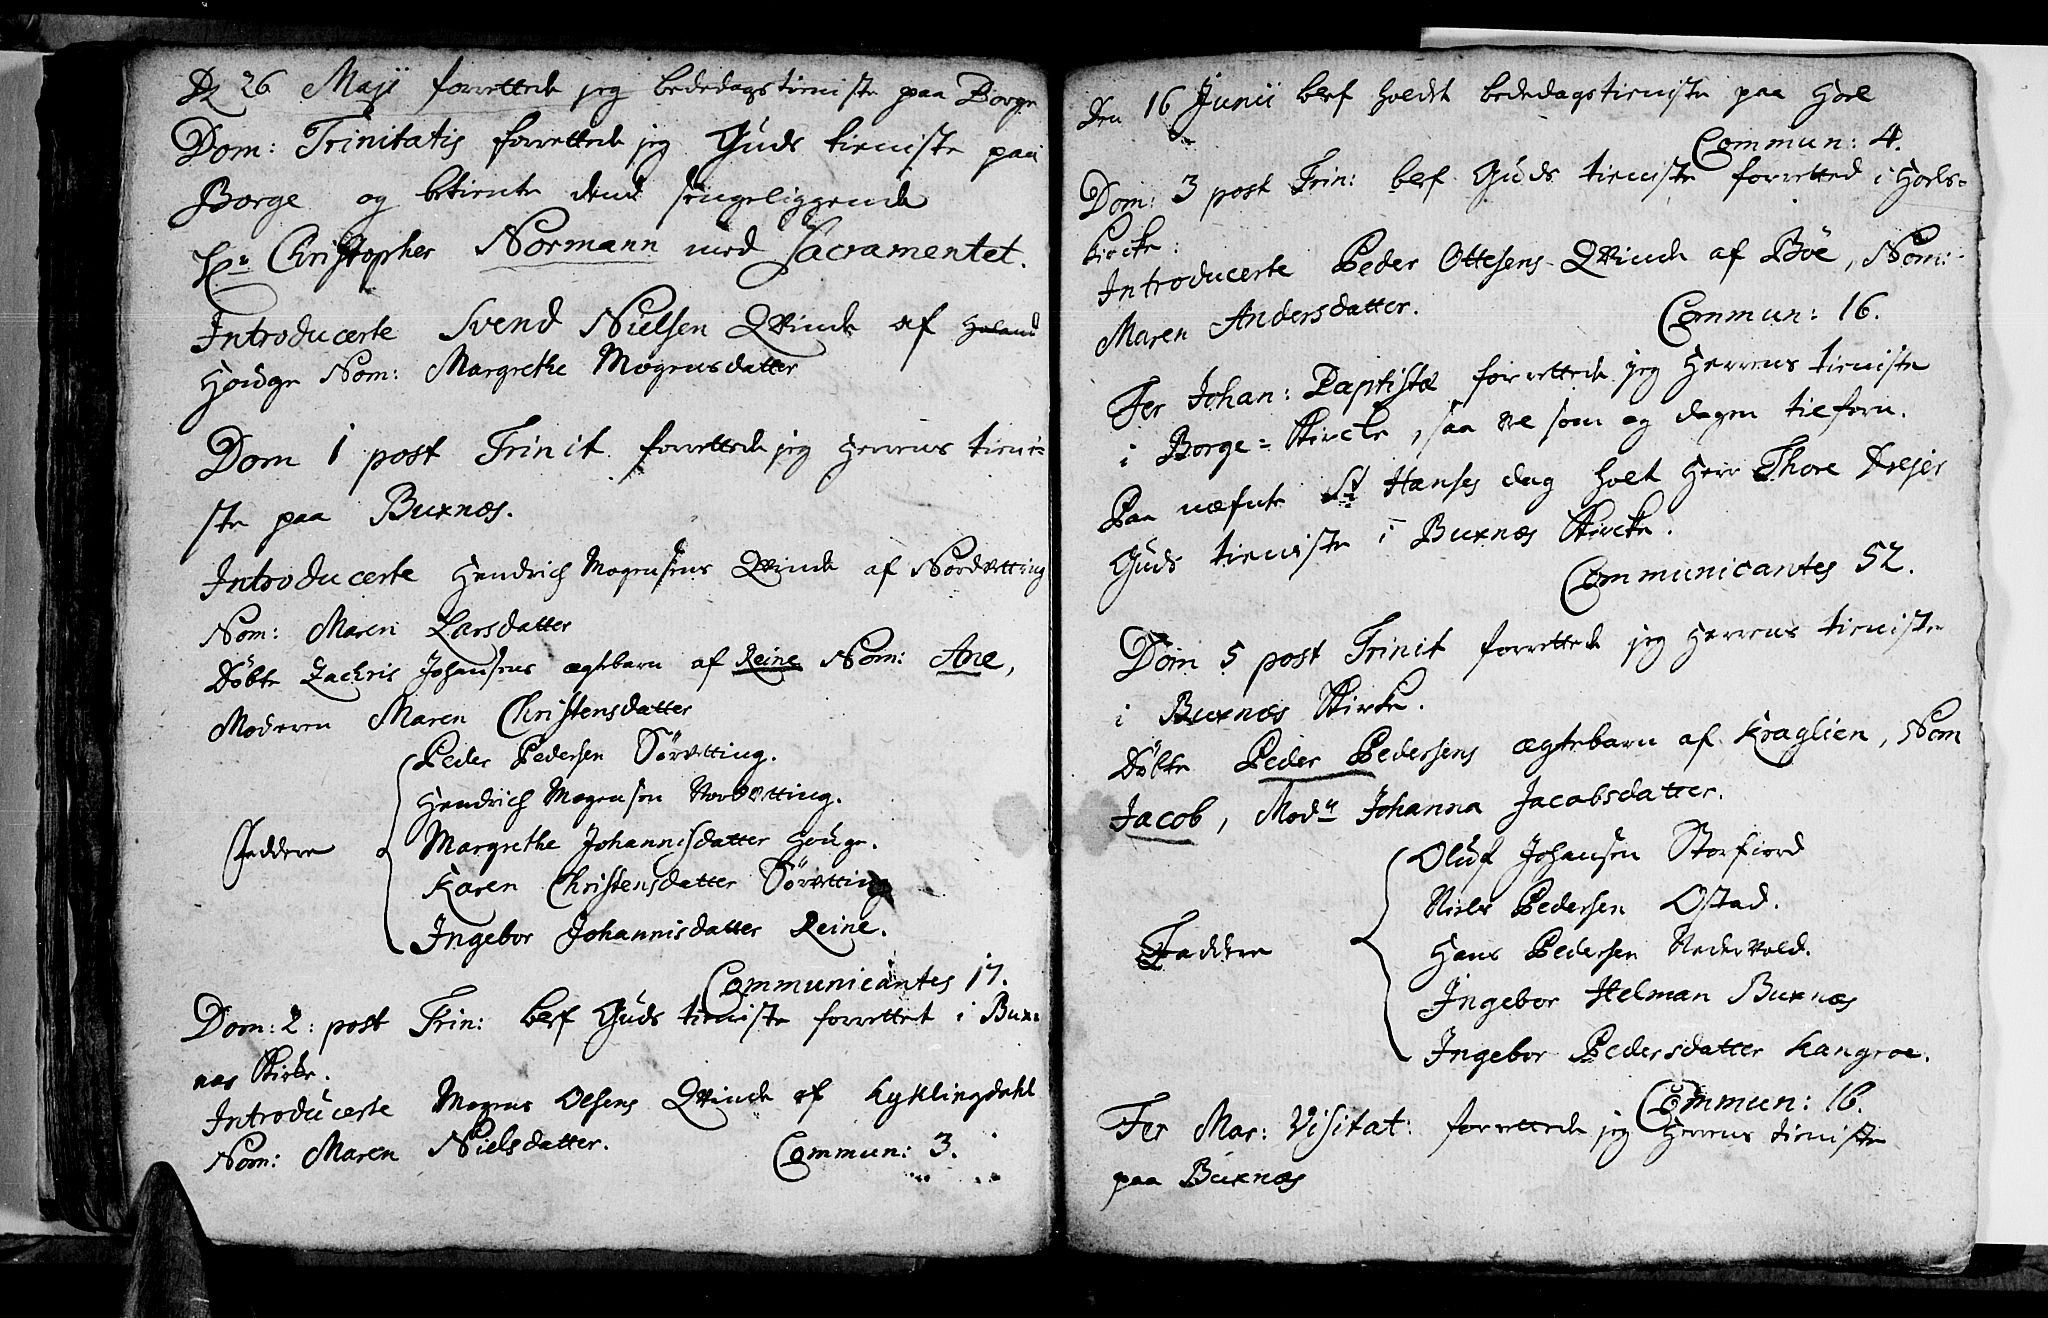 D 26 Maji forrettede jeg bededagstieniste paa Borge
Dom: Trinitatis forrettede jeg Guds tieniste paa
Borge og betiente dend sengeliggende
Hr Christopher Normann med Sacramentet.
Introducerte Svend Nielsen Qvinde af Holand
Houge Nom: Margrethe Mogensdatter
Dom 1 post Trinit forrettede jeg Herrens tieni-
ste paa Buxnæs.
Introducerte Hendrich Mogensens Qvinde af Nordvetting
Nom: Maren Larsdatter
Døbte Zachris Johansens ægtebarn af Reine Nom: Ane,
Moderen Maren Christensdatter
Peder Pedersen Sörvetting.
Hendrich Mogensen Norvetting.
Faddere Margrethe Johannisdatter Houge.
Karen Christensdatter Sörvetting
Ingebor Johannisdatter Reine.
Communicantes 17.
Dom: 2: post Trin: blef Guds tieniste forrettet i Bux-
næs Kirke.
Introducerte Mogens Olsens Qvinde af Kyklingdahl
Nom: Maren Nielsdatter. Commun: 3.
Den 16 Junii blef holdt bededagstieniste paa Hoel
Commun: 4.
Dom: 3 post Trin: blef Guds tieniste forretted i Hoels-
kircke:
Introducerte Peder Ottesens Qvinde af Böe, Nom:
Maren Andersdatter. Commun: 16.
Fer Johan: Baptistæ forrettede jeg Herrens tieniste
i Borge-Kircke, saa vel som og dagen tilforn.
Paa næfnte St Hanses dag holt Herr Thore Drejer
Guds tieniste i Buxnæs Kircke.
Communicantes 52.
Dom 5 post Trinit forrettede jeg Herrens tieniste
i Buxnæs Kirke.
Döbte Peder Pedersens ægtebarn af Kraglien, Nom
Jacob, Modn Johanna Jacobsdatter.
Oluf Johansen Storfiord
Niels Pedersen Ostad.
Faddere Hans Pedersen Nedervold.
Ingebor Helman Buxnæs
Ingebor Pedersdatter Kangroe.
Commun: 16.
Fer Mar: Visitat: forrettede jeg Herrens tieniste
paa Buxnæs